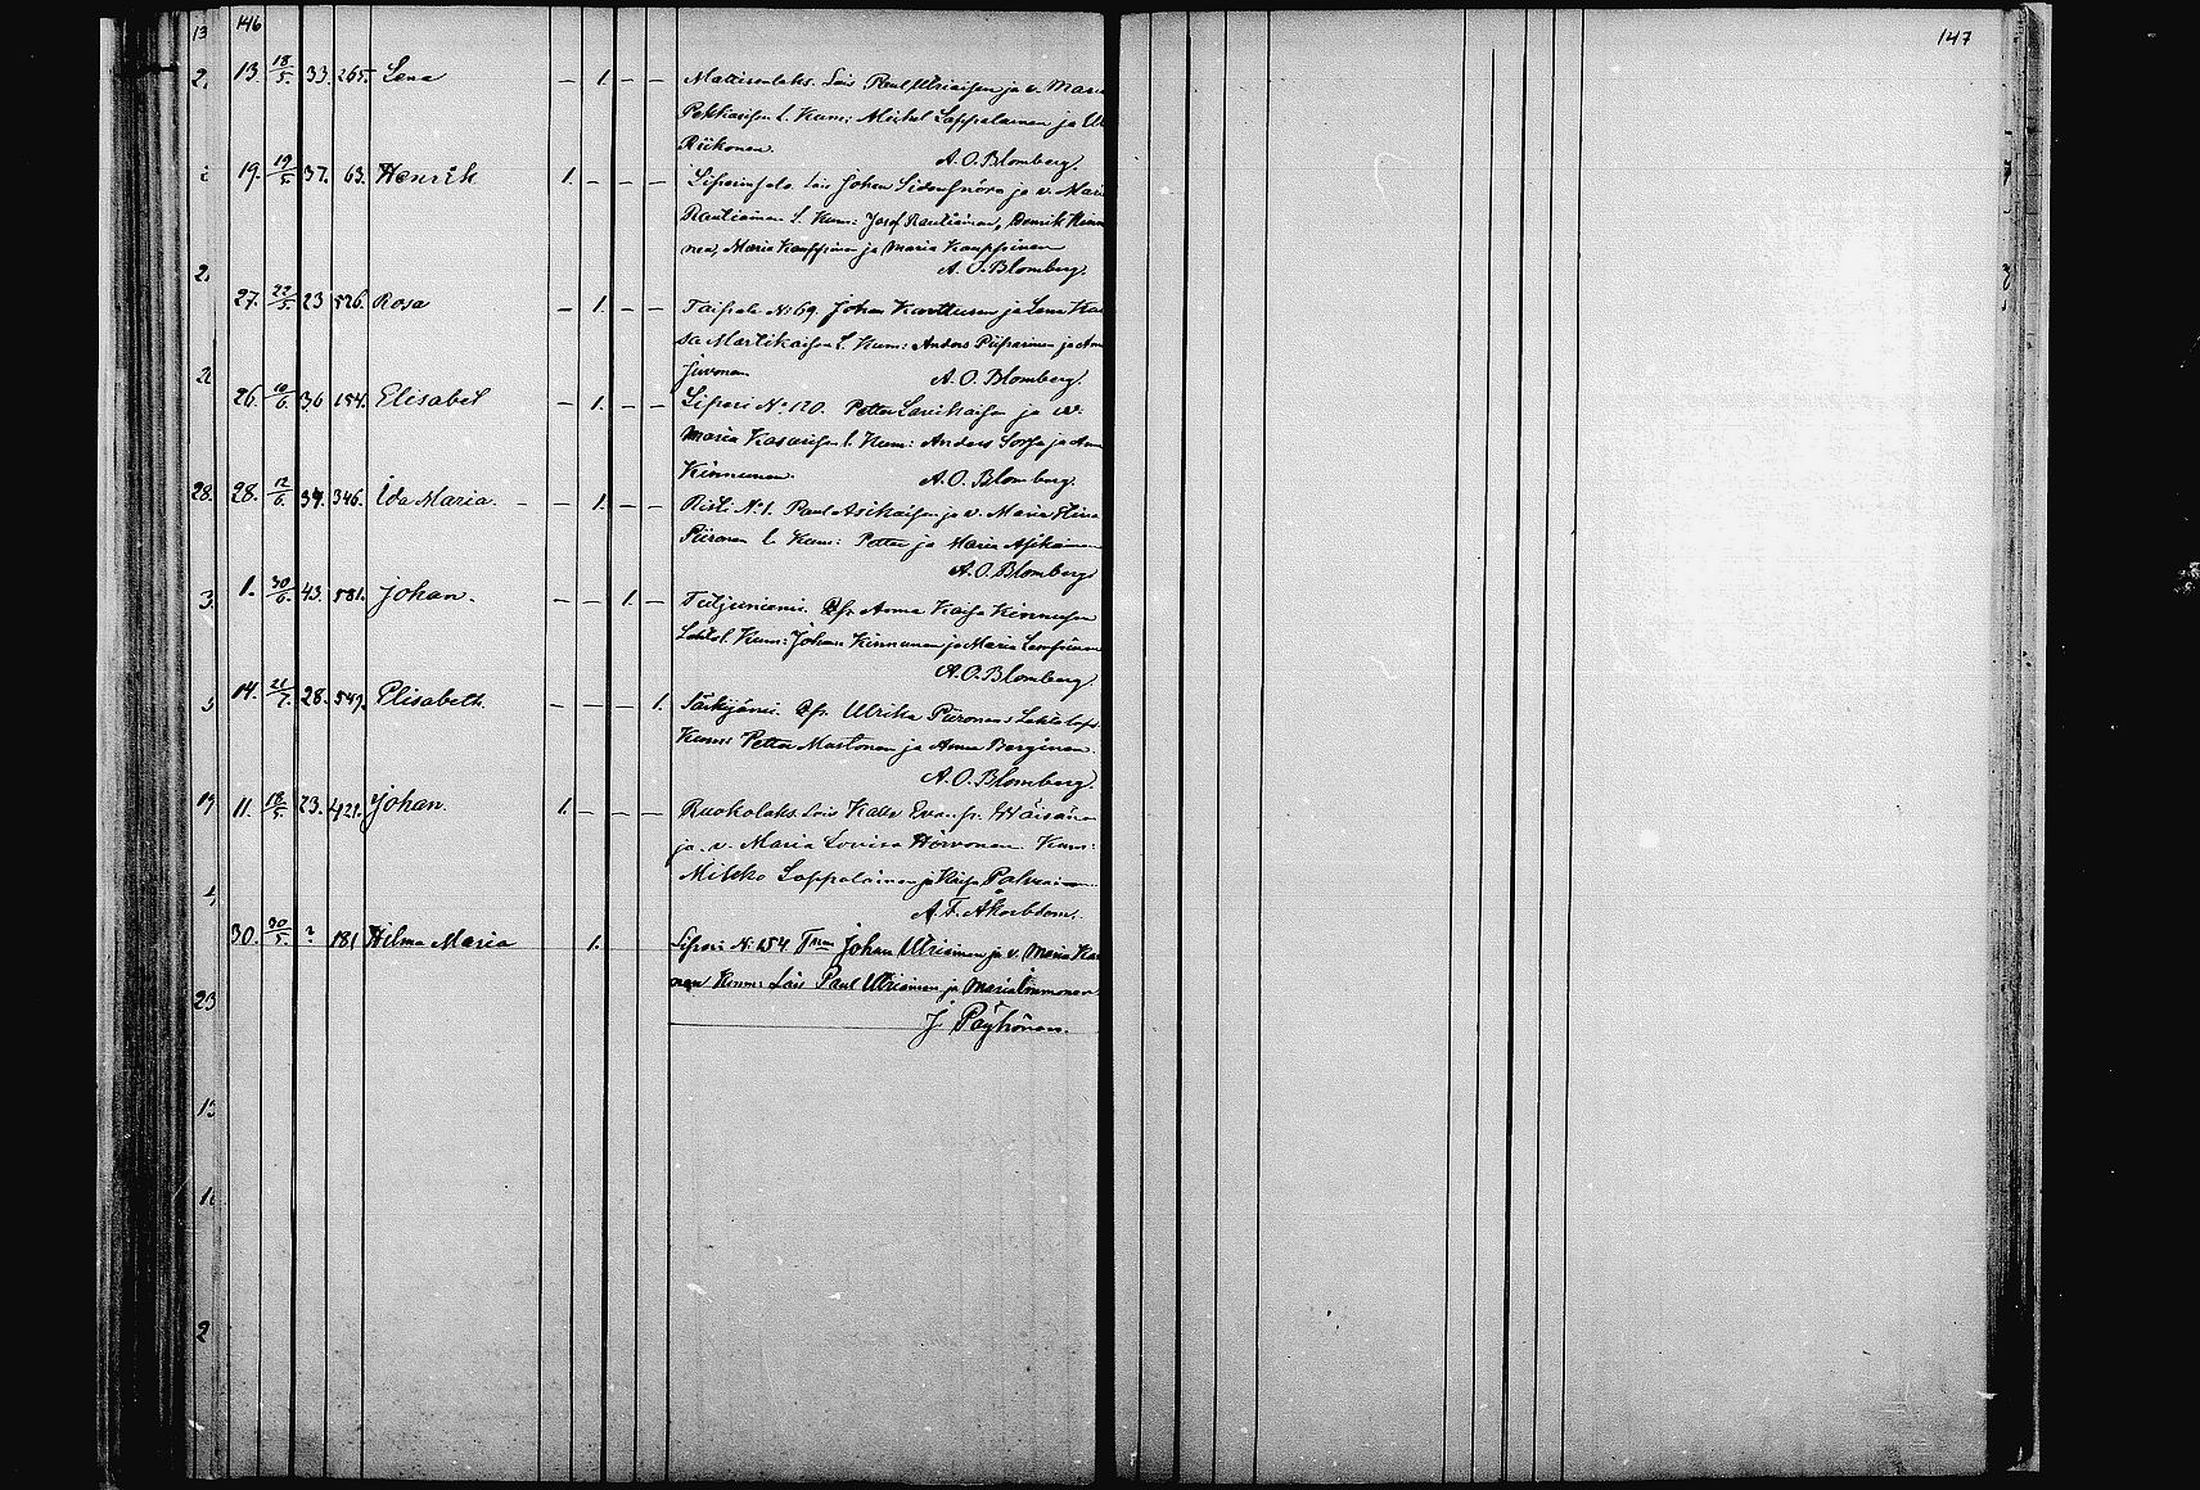 146
147
13. 18/5. 33. 265. Lena — 1. — — Mattisenlaks. Lois Paul Utriaisen ja v. Maria
Pekkarisen l. Kum: Michel Lappalainen ja Ul
Riikonen. A. O. Blomberg.
19. 19/5. 37. 63. Henrik 1. — — — Liperinsalo. Lois Johan Sidensnöra ja v. Maria
Rautiainen l. Kum: Josef Rautiainen, Henrik Kinnu
nen, Maria Kauppinen ja Maria Kauppinen
A. O. Blomberg.
27. 22/5. 23 526. Rosa — 1. — — Taipale No 69. Johan Karttusen ja Lena Kai
sa Martikaisen l. Kum: Anders Piiparinen ja Ann
Juvonen A. O. Blomberg.
26. 10/6. 36 154. Elisabet — 1. — — Liperi No 120. Petter Lavikaisen ja w.
Maria Kasurisen l. Kum: Anders Sorsa ja Ann
Kinnunen. A. O. Blomberg.
28. 12/6. 39. 346. Ida Maria. — — 1. — — Risti No 1. Paul Asikaisen ja v. Maria Stina
Piironen l. Kum: Petter ja Maria Asikainen
A. O. Blomberg
1. 30/6. 43. 581. Johan. — — 1. — Tutjuniemi. Anna Kaisa Kinnusen
Lehtol. Kum: Johan Kinnunen ja Maria
A. O. Blomberg.
14. 21/7. 28. 549. Elisabeth. — — — 1. Särkijärvi. Ulrika Piironens
Kum: Petter Mustonen ja Anna Berginen.
A. O. Blomberg.
11. 18/5. 23. 421. Johan. 1. — — — Ruokolaks. Lois Kalle Wäisänen
ja v. Maria Lovisa Hirvonen. Kum:
Mikko Lappalainen ja Kaisa
A. F. Åkerblom.
30. 30/5. ? 181 Hilma Maria 1. Liperi No 154 Johan Utriainen ja v. Maria
nen Kum: Lois Paul Utriainen ja Maria Immonen.
J. Pöyhönen.